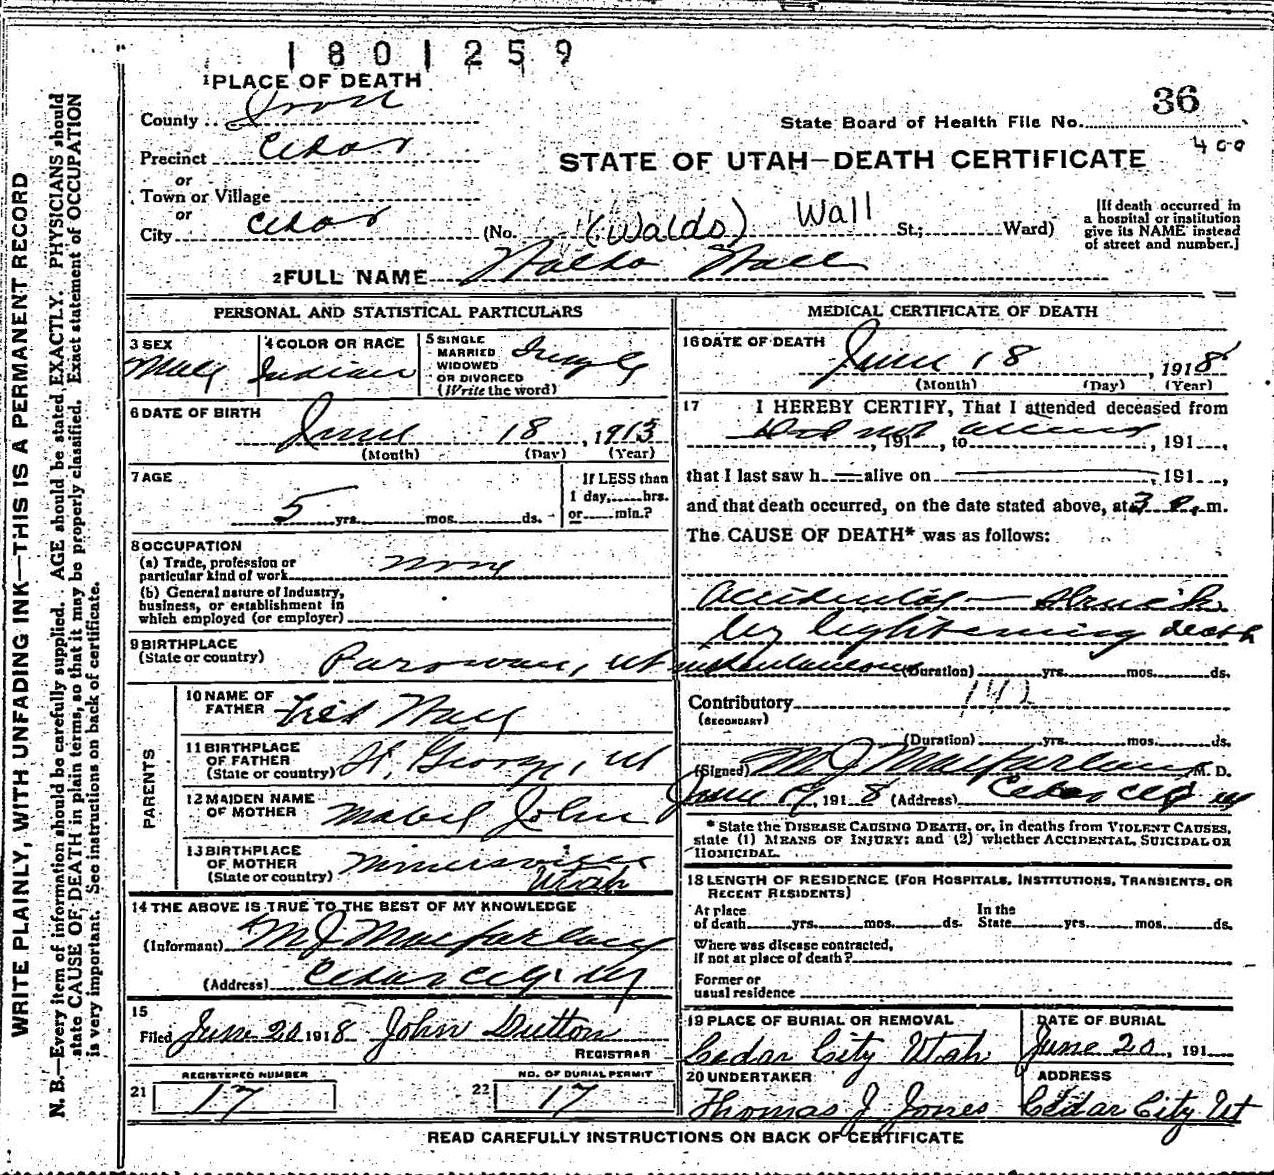 1801259
1 PLACE OF DEATH
County Iron
36
State Board of Health File No.
400
Precinct Cedar
STATE OF UTAH—DEATH CERTIFICATE
or
Town or Village
or
City Cedar
(No. (Waldo) Wall St.; Ward)
[If death occurred in
a hospital or institution
give its NAME instead
of street and number.]
2 FULL NAME Waldo Wall
PERSONAL AND STATISTICAL PARTICULARS
3 SEX
Male
4 COLOR OR RACE
Indian
5 SINGLE
MARRIED
WIDOWED
OR DIVORCED
(Write the word)
Single
6 DATE OF BIRTH
June 18, 1913
(Month) (Day) (Year)
7 AGE
5 yrs. mos. ds.
If LESS than
1 day, hrs.
or min.?
8 OCCUPATION
(a) Trade, profession or
particular kind of work none
(b) General nature of Industry,
business, or establishment in
which employed (or employer)
9 BIRTHPLACE
(State or country) Parowan, Ut
PARENTS
10 NAME OF
FATHER Fred Wall
11 BIRTHPLACE
OF FATHER
(State or country) St. George, Ut
12 MAIDEN NAME
OF MOTHER Mabel John
13 BIRTHPLACE
OF MOTHER
(State or country) Minersville
Utah
14 THE ABOVE IS TRUE TO THE BEST OF MY KNOWLEDGE
(Informant) M J Macfarlane
(Address) Cedar City
15
Filed June 20 1918 John Dutton
REGISTRAR
REGISTERED NUMBER
21 17
NO. OF BURIAL PERMIT
22 17
MEDICAL CERTIFICATE OF DEATH
16 DATE OF DEATH
June 18, 1918
(Month) (Day) (Year)
17 I HEREBY CERTIFY, That I attended deceased from
Did not attend, 191, to, 191,
that I last saw h alive on, 191,
and that death occurred, on the date stated above, at 3 P. m.
The CAUSE OF DEATH* was as follows:
Accidental — Struck
by lightening death
instantaneous (Duration) yrs. mos. ds.
Contributory 142
(SECONDARY)
(Duration) yrs. mos. ds.
(Signed) M J Macfarlane M. D.
June 19, 1918 (Address) Cedar City Ut
* State the DISEASE CAUSING DEATH, or, in deaths from VIOLENT CAUSES,
state (1) MEANS OF INJURY; and (2) whether ACCIDENTAL, SUICIDAL OR
HOMICIDAL.
18 LENGTH OF RESIDENCE (FOR HOSPITALS, INSTITUTIONS, TRANSIENTS, OR
RECENT RESIDENTS)
At place
of death yrs. mos. ds.
In the
State yrs. mos. ds.
Where was disease contracted,
if not at place of death?
Former or
usual residence
19 PLACE OF BURIAL OR REMOVAL
Cedar City Utah
DATE OF BURIAL
June 20, 191
20 UNDERTAKER
Thomas J Jones
ADDRESS
Cedar City Ut
READ CAREFULLY INSTRUCTIONS ON BACK OF CERTIFICATE
WRITE PLAINLY, WITH UNFADING INK—THIS IS A PERMANENT RECORD
N. B.—Every item of information should be carefully supplied. AGE should be stated EXACTLY. PHYSICIANS should
state CAUSE OF DEATH in plain terms, so that it may be properly classified. Exact statement of OCCUPATION
is very important. See instructions on back of certificate.